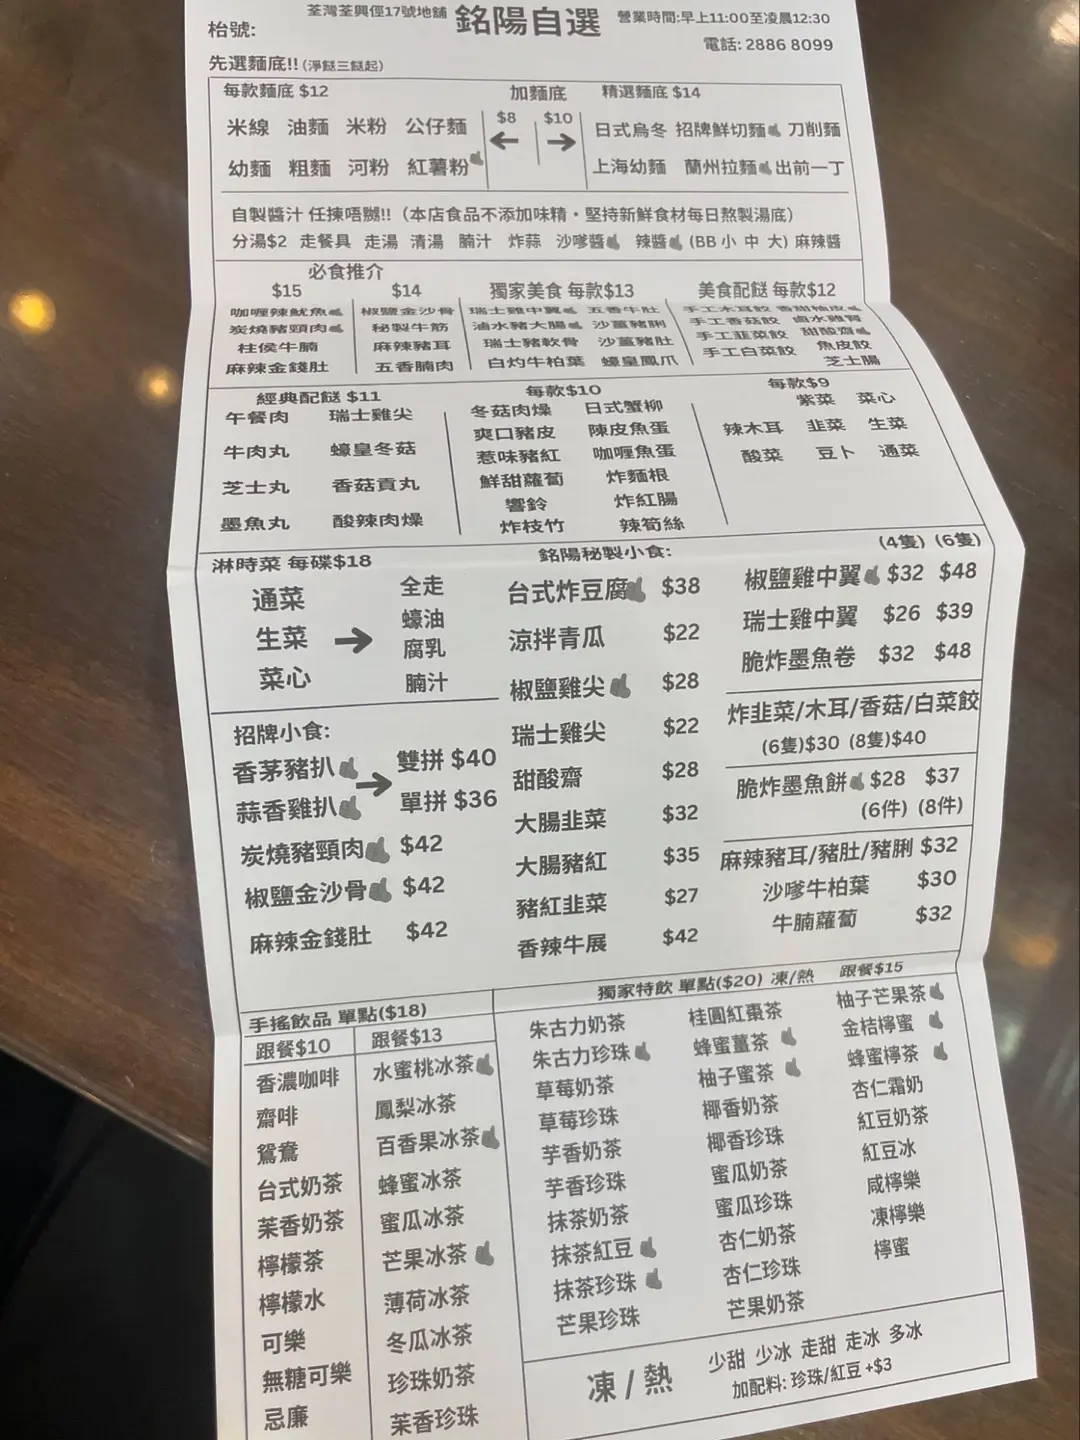 荃灣荃興徑17號地舖 銘陽自選 營業時間:早上11:00至凌晨12:30
枱號: 電話: 2886 8099
先選麵底!! (淨餸三餸起)
每款麵底 $12 加麵底 精選麵底 $14
米線 油麵 米粉 公仔麵 $8 $10 日式烏冬 招牌鮮切麵 刀削麵
幼麵 粗麵 河粉 紅薯粉 ← → 上海幼麵 蘭州拉麵 出前一丁
自製醬汁 任揀唔嬲!! (本店食品不添加味精・堅持新鮮食材每日熬製湯底)
分湯$2 走餐具 走湯 清湯 腩汁 炸蒜 沙嗲醬 辣醬 (BB 小 中 大) 麻辣醬
必食推介
$15 $14 獨家美食 每款$13 美食配餸 每款$12
咖喱辣魷魚 椒鹽金沙骨 瑞士雞中翼 五香牛肚 手工木耳餃 香甜柚皮
炭燒豬頸肉 秘製牛筋 滷水豬大腸 沙薑豬脷 手工香菇餃 鹵水雞腎
柱侯牛腩 麻辣豬耳 瑞士豬軟骨 沙薑豬肚 手工韮菜餃 甜酸齋
麻辣金錢肚 五香腩肉 白灼牛柏葉 蠔皇鳳爪 手工白菜餃 魚皮餃
芝士腸
經典配餸 $11 每款$10 每款$9
午餐肉 瑞士雞尖 冬菇肉燥 日式蟹柳 紫菜 菜心
爽口豬皮 陳皮魚蛋 辣木耳 韭菜 生菜
牛肉丸 蠔皇冬菇 惹味豬紅 咖喱魚蛋 酸菜 豆卜 通菜
芝士丸 香菇貢丸 鮮甜蘿蔔 炸麵根
響鈴 炸紅腸
墨魚丸 酸辣肉燥 炸枝竹 辣筍絲
淋時菜 每碟$18 銘陽秘製小食: (4隻) (6隻)
通菜 全走 台式炸豆腐 $38 椒鹽雞中翼 $32 $48
生菜 → 蠔油 涼拌青瓜 $22 瑞士雞中翼 $26 $39
腐乳 脆炸墨魚卷 $32 $48
菜心 腩汁 椒鹽雞尖 $28
招牌小食: 瑞士雞尖 $22 炸韭菜/木耳/香菇/白菜餃
(6隻)$30 (8隻)$40
香茅豬扒 → 雙拼 $40 甜酸齋 $28 脆炸墨魚餅 $28 $37
蒜香雞扒 單拼 $36 大腸韭菜 $32 (6件) (8件)
炭燒豬頸肉 $42 大腸豬紅 $35 麻辣豬耳/豬肚/豬脷 $32
椒鹽金沙骨 $42 豬紅韭菜 $27 沙嗲牛柏葉 $30
麻辣金錢肚 $42 香辣牛展 $42 牛腩蘿蔔 $32
手搖飲品 單點($18) 獨家特飲 單點($20) 凍/熱 跟餐$15
跟餐$10 跟餐$13 朱古力奶茶 桂圓紅棗茶 柚子芒果茶
香濃咖啡 水蜜桃冰茶 朱古力珍珠 蜂蜜薑茶 金桔檸蜜
齋啡 鳳梨冰茶 草莓奶茶 柚子蜜茶 蜂蜜檸茶
鴛鴦 百香果冰茶 草莓珍珠 椰香奶茶 杏仁霜奶
台式奶茶 蜂蜜冰茶 芋香奶茶 椰香珍珠 紅豆奶茶
茉香奶茶 蜜瓜冰茶 芋香珍珠 蜜瓜奶茶 紅豆冰
檸檬茶 芒果冰茶 抹茶奶茶 蜜瓜珍珠 咸檸樂
檸檬水 薄荷冰茶 抹茶紅豆 杏仁奶茶 凍檸樂
可樂 冬瓜冰茶 抹茶珍珠 杏仁珍珠 檸蜜
無糖可樂 珍珠奶茶 芒果珍珠 芒果奶茶
忌廉 茉香珍珠
凍 / 熱 少甜 少冰 走甜 走冰 多冰
加配料: 珍珠/紅豆 +$3